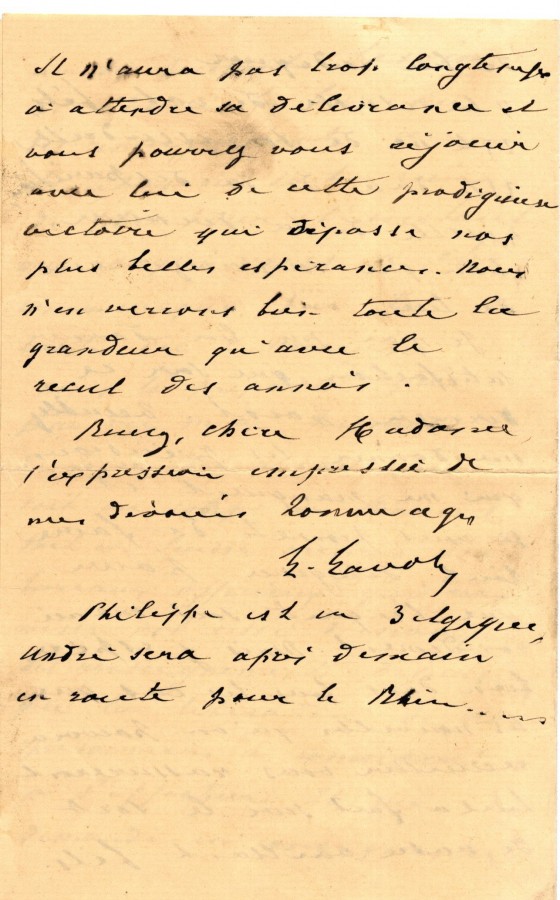 Il n'aura pas trop longtemps
à attendre sa délivrance et
vous pourrez vous réjouir
avec lui de cette prodigieuse
victoire qui dépasse nos
plus belles espérances. Nous
n'en verrons bien toute la
grandeur qu'avec le
recul des années.
Chère Madame,
l'expression empressée de
mes dévoués hommages
Philippe est en Belgique,
André sera après demain
en route pour le Rhin....